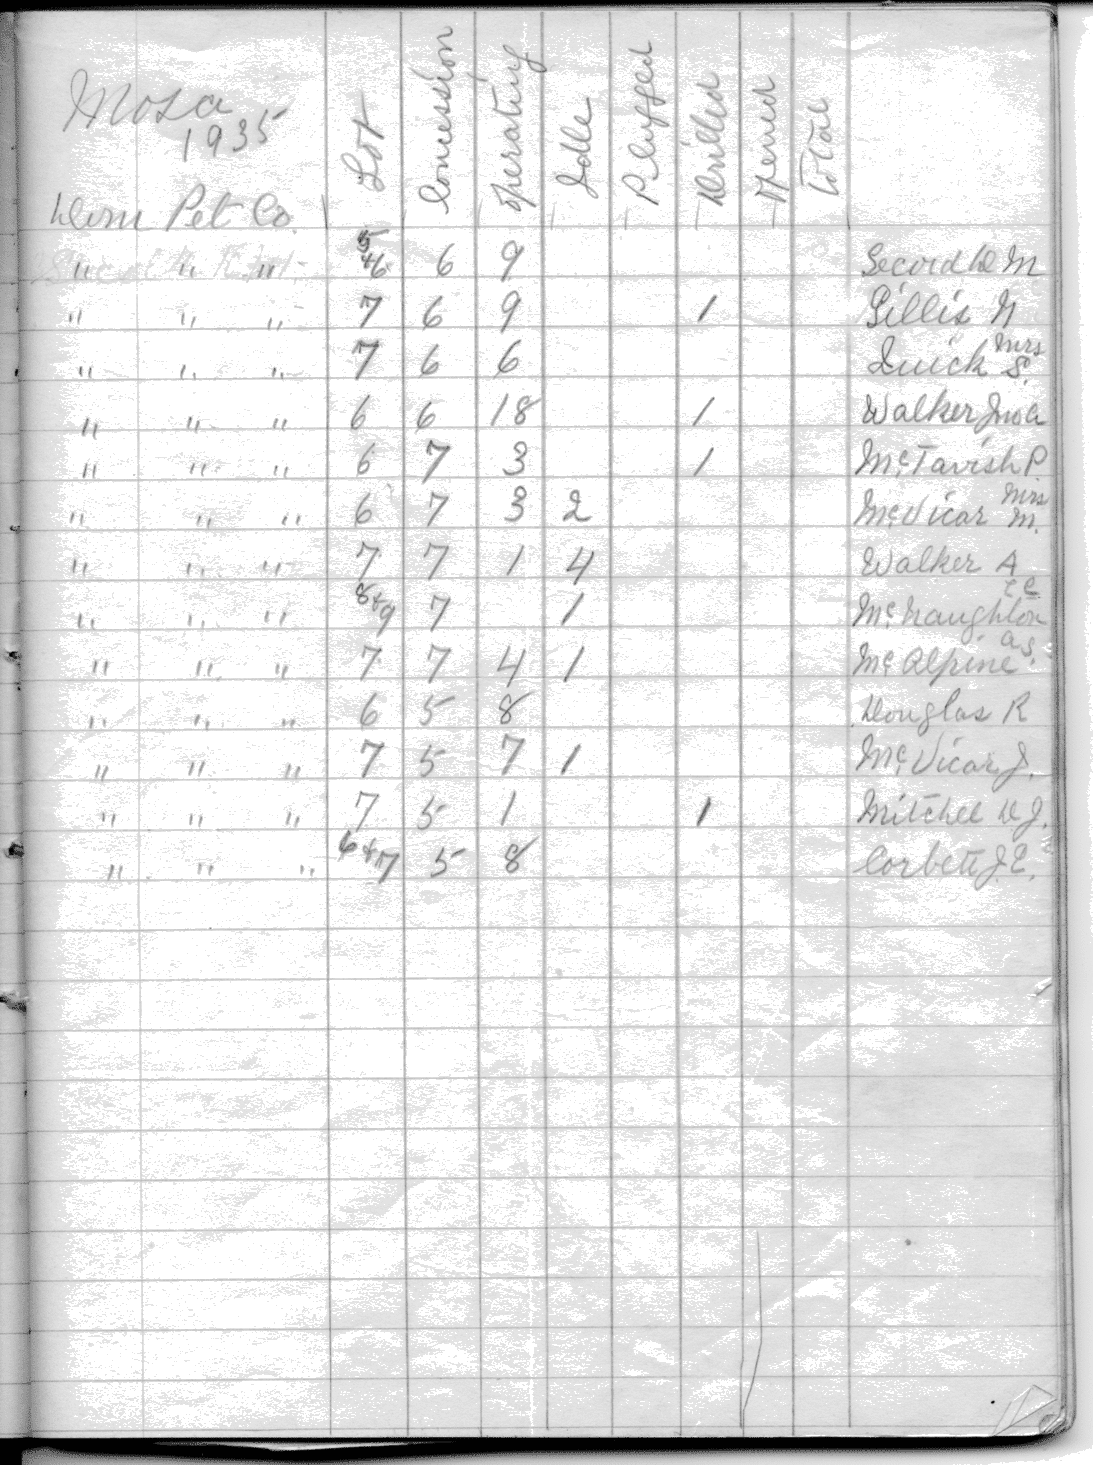 Mosa
1935
Lot Concession Operating Idle Plugged Drilled Opened Total
Dom Pet Co.
" " " 5+6 6 9 Secord D M
" " " 7 6 9 1 Gillis N
" " " 7 6 6 Quick Mrs S.
" " " 6 6 18 1 Walker Jno A
" " " 6 7 3 1 McTavish P
" " " 6 7 3 2 McVicar Mrs M.
" " " 7 7 1 4 Walker A
" " " 8+9 7 1 McNaughton
" " " 7 7 4 1 McAlpine A S.
" " " 6 5 8 Douglas R
" " " 7 5 7 1 McVicar J.
" " " 7 5 1 1 Mitchel D J.
" " " 6+7 5 8 Corbett J. E.